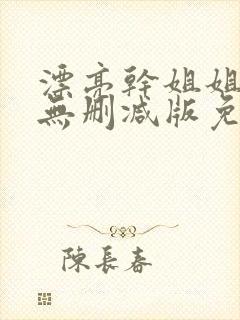 漂亮幹姐姐
無刪减版免
陳長春